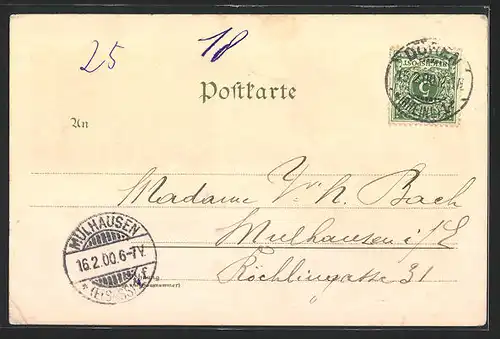 25
18
DÜREN
Postkarte
An
Madame Vve N. Bach
Mulhausen i/E
Köchlingasse 31
MÜLHAUSEN
16.2.00.6-7V.
(ELSASS) f